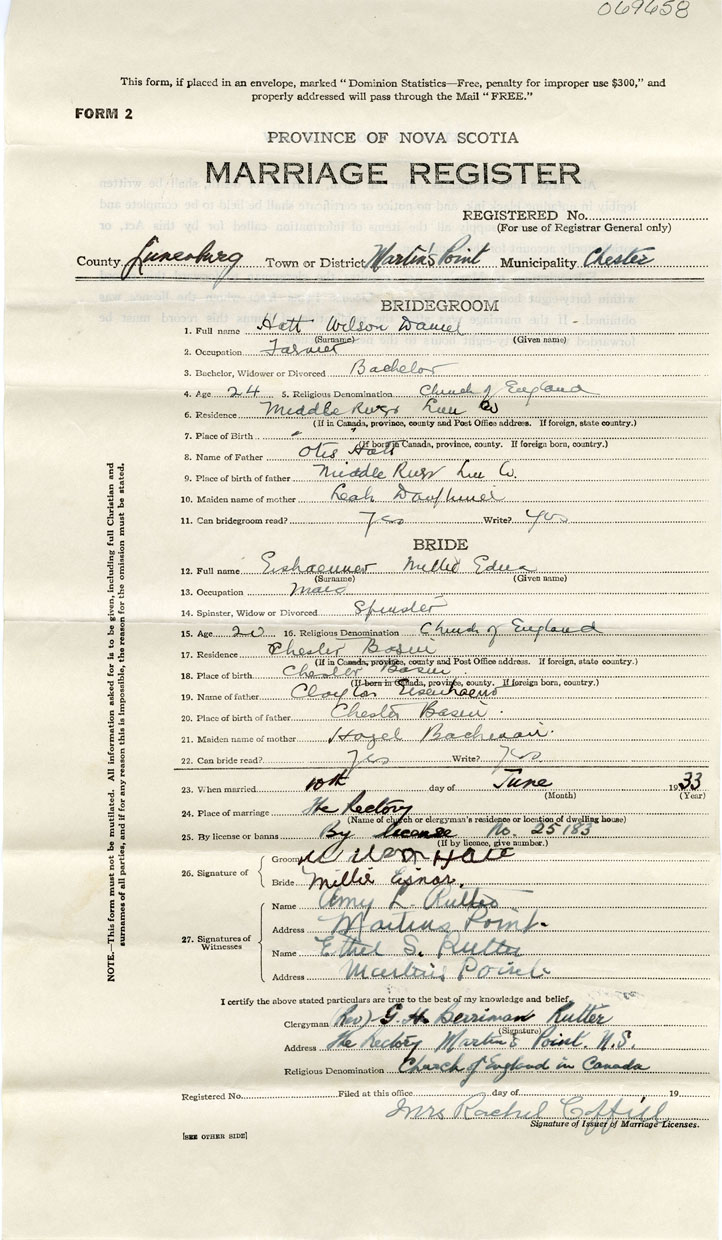 069658
This form, if placed in an envelope, marked "Dominion Statistics—Free, penalty for improper use $300," and
properly addressed will pass through the Mail "FREE."
FORM 2
PROVINCE OF NOVA SCOTIA
MARRIAGE REGISTER
REGISTERED No.
(For use of Registrar General only)
County Lunenburg Town or District Martin's Point Municipality Chester
BRIDEGROOM
1. Full name Hatt Wilson Daniel
(Surname) (Given name)
2. Occupation Farmer
3. Bachelor, Widower or Divorced Bachelor
4. Age 24 5. Religious Denomination Church of England
6. Residence Middle River Lun Co
(If in Canada, province, county and Post Office address. If foreign, state country.)
7. Place of Birth " "
(If born in Canada, province, county. If foreign born, country.)
8. Name of Father Otis Hatt
9. Place of birth of father Middle River Lun Co.
10. Maiden name of mother Leah Dauphinei
11. Can bridegroom read? Yes Write? Yes
BRIDE
12. Full name Millie Edna
(Surname) (Given name)
13. Occupation Maid
14. Spinster, Widow or Divorced Spinster
15. Age 20 16. Religious Denomination Church of England
17. Residence Chester Basin
(If in Canada, province, county and Post Office address. If foreign, state country.)
18. Place of birth Chester Basin
(If born in Canada, province, county. If foreign born, country.)
19. Name of father Clayton
20. Place of birth of father Chester Basin.
21. Maiden name of mother Hazel Bachman
22. Can bride read? Yes Write? Yes
23. When married 10th day of June 1933
(Month) (Year)
24. Place of marriage The Rectory
(Name of church or clergyman's residence or location of dwelling house)
25. By license or banns By license No. 25183
(If by licence, give number.)
26. Signature of
Groom Hatt
Bride Millie Eisnor.
27. Signatures of
Witnesses
Name Amy L. Rutter
Address Martins Point.
Name Ethel S. Rutter
Address Martins Point
I certify the above stated particulars are true to the best of my knowledge and belief.
Clergyman Rev) G. H. Berriman Rutter
(Signature)
Address The Rectory Martin's Point. N.S.
Religious Denomination Church of England in Canada
Registered No. Filed at this office day of 19
Mrs Rachel Coffill
Signature of Issuer of Marriage Licenses.
[SEE OTHER SIDE]
NOTE.—This form must not be mutilated. All information asked for is to be given, including full Christian and
surnames of all parties, and if for any reason this is impossible, the reason for the omission must be stated.